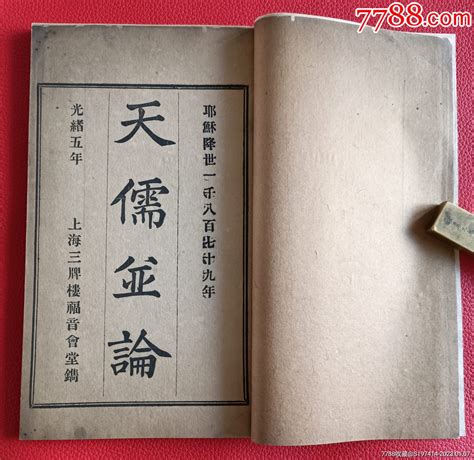 7788.com
耶穌降世一千八百七十九年
天儒並論
光緒五年
上海三牌樓福音會堂鐫
7788收藏@S197414-2023.01.07